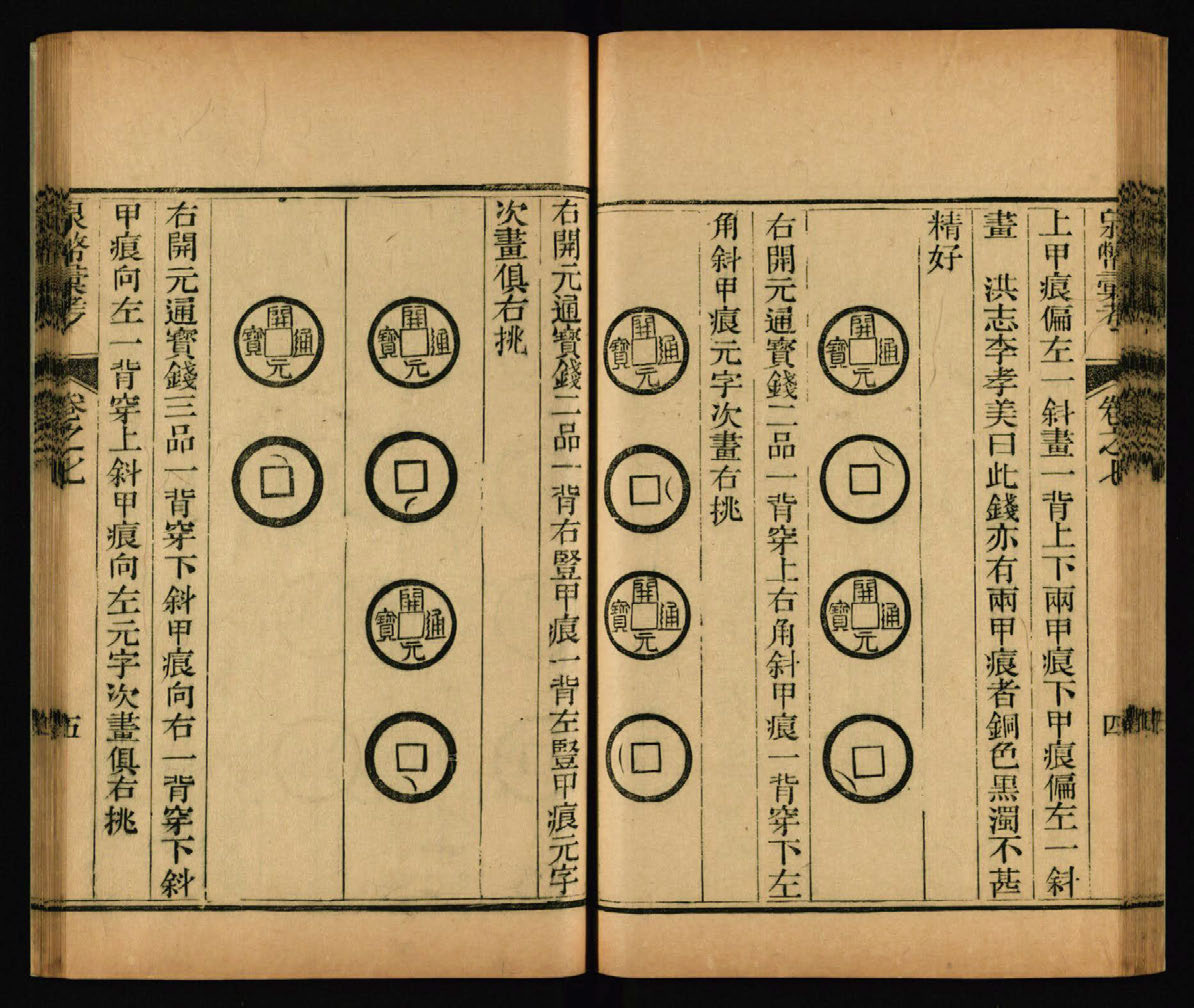 泉幣彙考 卷之七 四
上甲痕偏左一斜畫一背上下兩甲痕下甲痕偏左一斜
畫 洪志李孝美曰此錢亦有兩甲痕者銅色黑濁不甚
精好
開元通寶
開元通寶
右開元通寶錢二品一背穿上右角斜甲痕一背穿下左
角斜甲痕元字次畫右挑
開元通寶
開元通寶
右開元通寶錢二品一背右豎甲痕一背左豎甲痕元字
次畫俱右挑
開元通寶
開元通寶
開元通寶
右開元通寶錢三品一背穿下斜甲痕向右一背穿下斜
甲痕向左一背穿上斜甲痕向左元字次畫俱右挑
泉幣彙考 卷之七 五